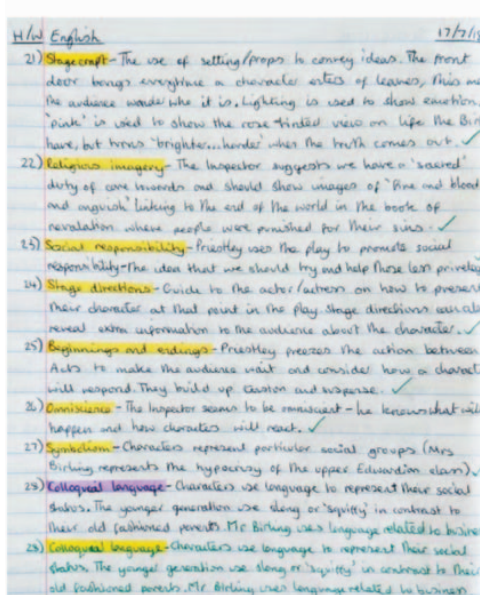 H/W English 17/7/19
21) Stagecraft - The use of setting/props to convey ideas. The front
door bangs everytime a character enters or leaves, this
the audience wonder who it is. Lighting is used to show emotion,
'pink' is used to show the rose tinted view on life the
have, but turns 'brighter...harder' when the truth comes out. ✓
22) Religious imagery - The Inspector suggests we have a 'sacred'
duty of care towards and should show images of "fire and blood
and anguish" linking to the end of the world in the book of
revalation where people were punished for their sins. ✓
23) Social responsibility - Priestley uses the play to promote social
responsibility - the idea that we should try and help those less
24) Stage directions - Guide to the actor/actress on how to present
their character at that point in the play. Stage directions can
reveal extra information to the audience about the character. ✓
25) Beginnings and endings - Priestley freezes the action between
Acts to make the audience wait and consider how a
will respond. They build up tension and suspense. ✓
26) Omniscience - The Inspector seems to be omniscient - he knows what
happen and how characters will react. ✓
27) Symbolism - Characters represent particular social groups (Mrs
Birling represents the hypocrisy of the upper Edwardian class) ✓
28) Colloqueal language - Characters use language to represent their social
status. The younger generation use slang or 'squiffy' in contrast to
their old fashioned parents. Mr Birling uses language related to
28) Colloqueal language - Characters use language to represent their social
status. The younger generation use slang or 'squiffy' in contrast to their
old fashioned parents. Mr Birling uses language related to business